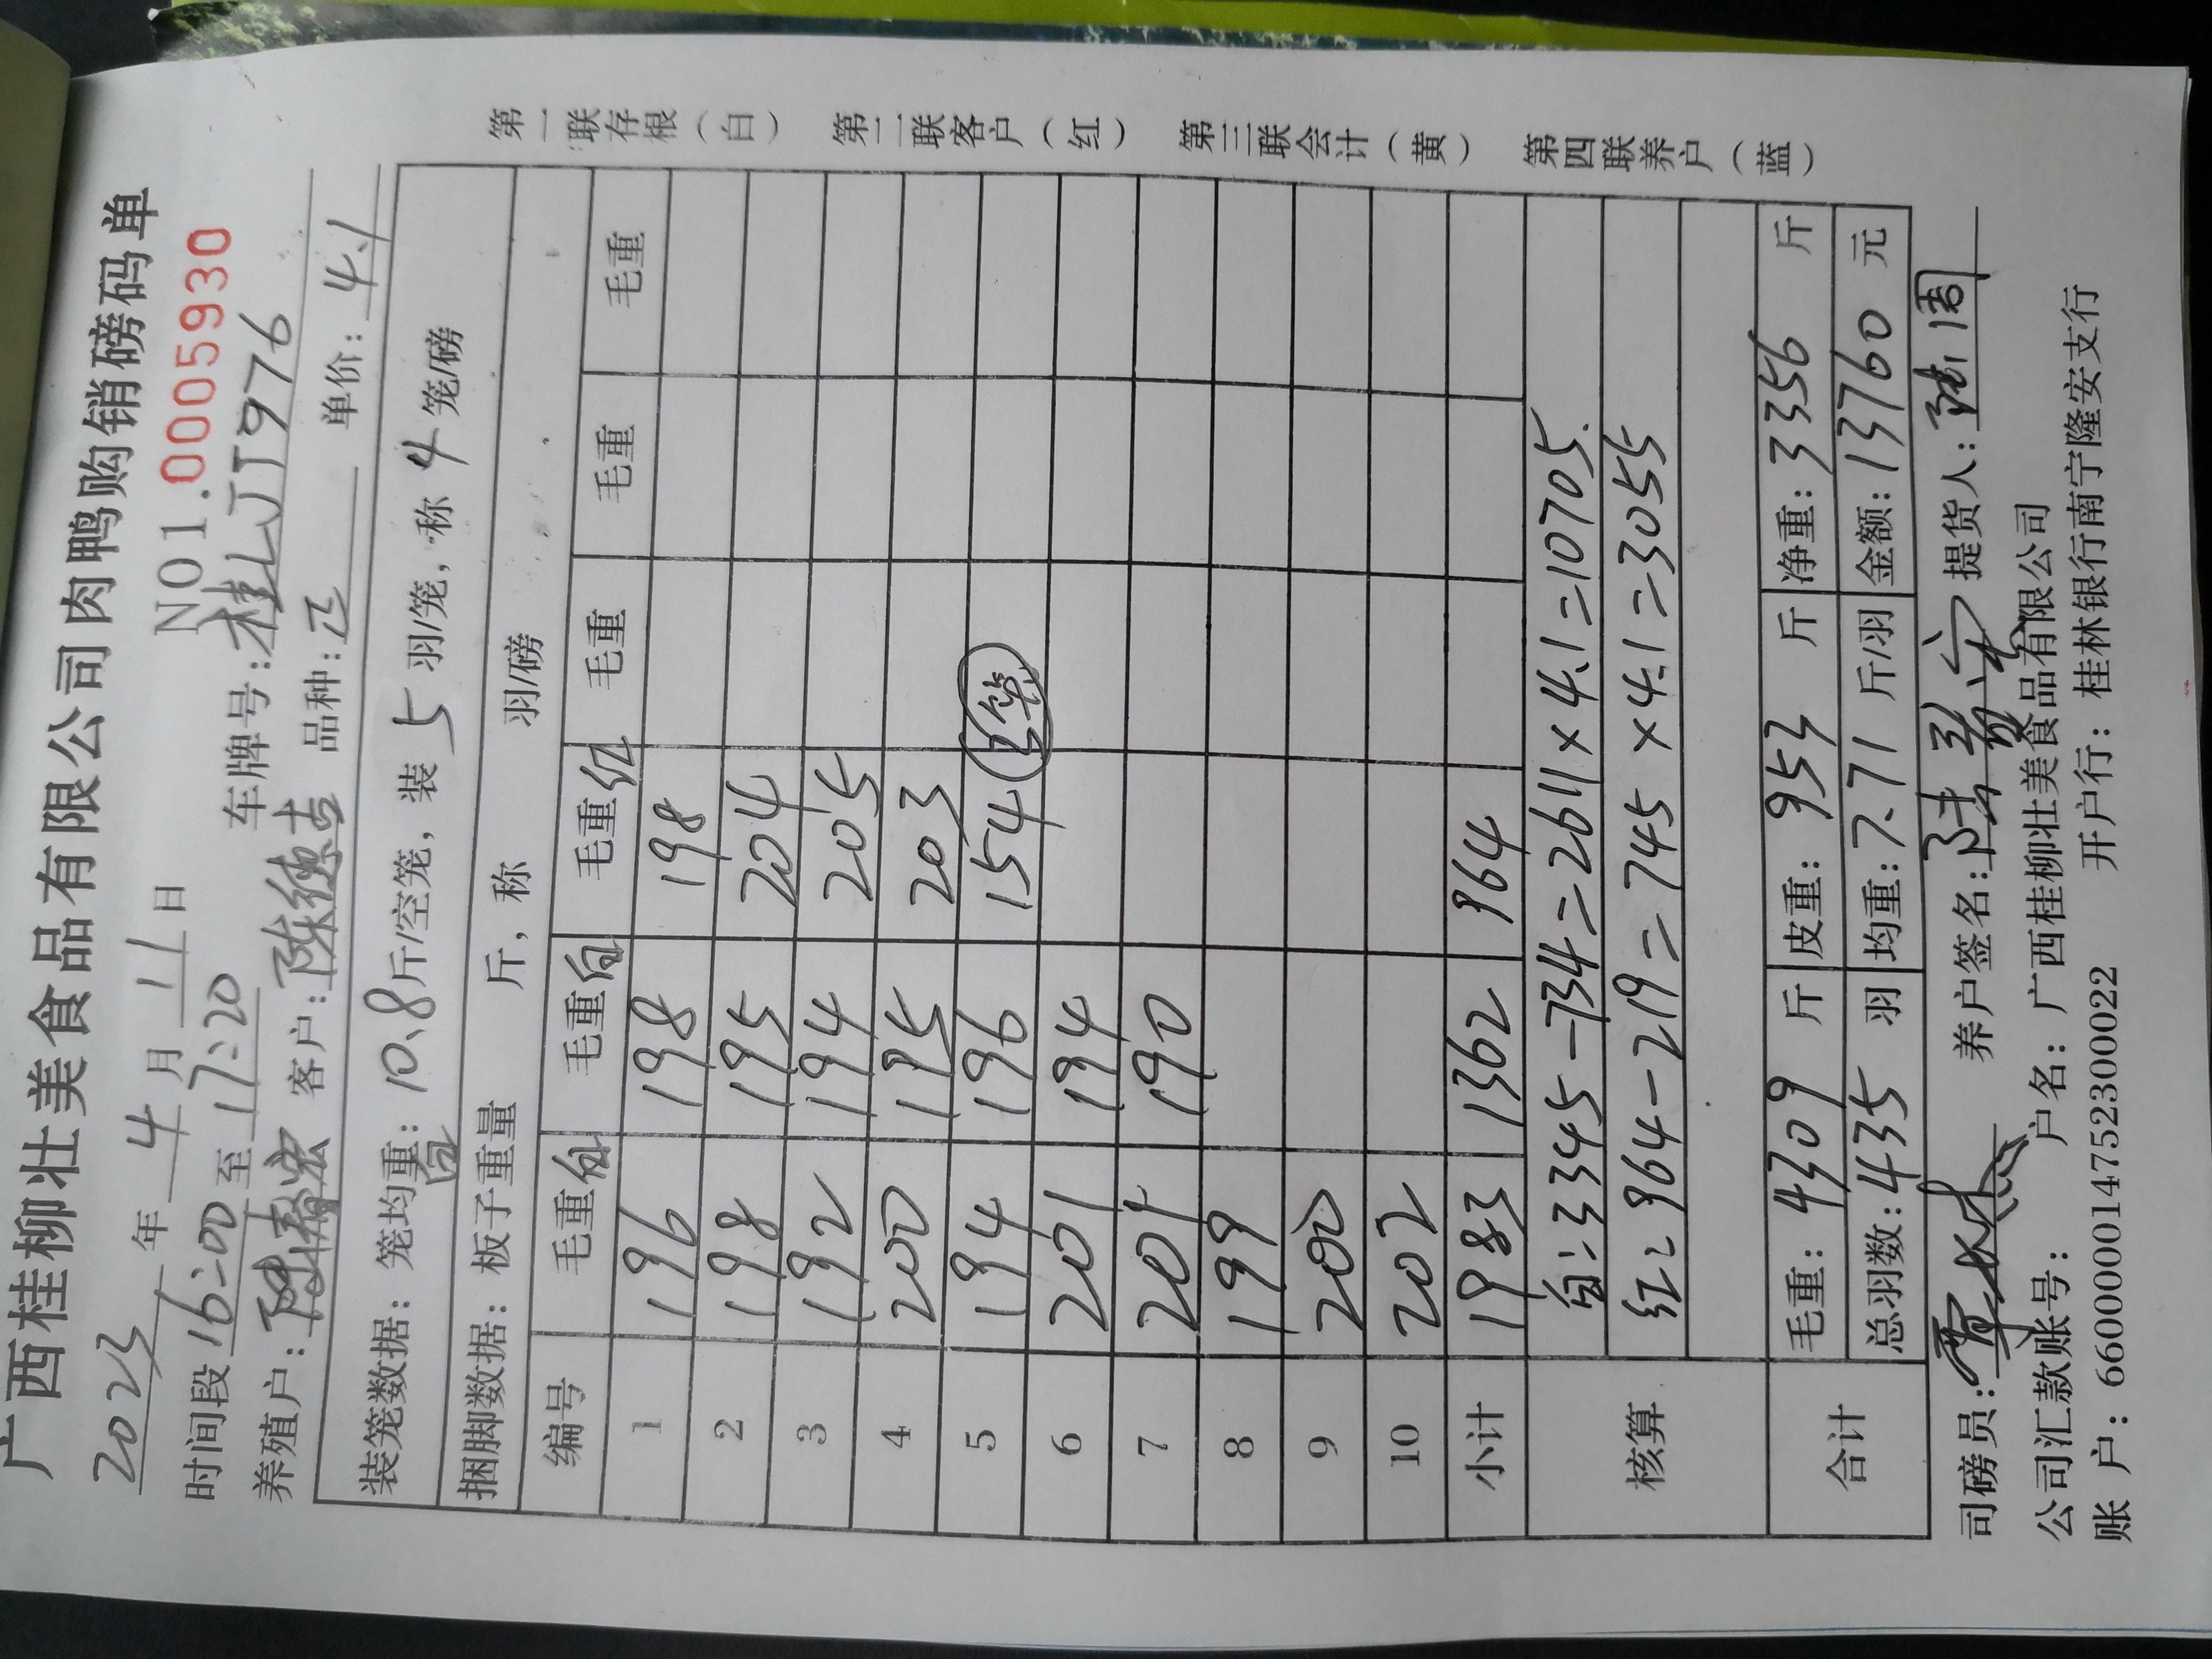 广西桂柳壮美食品有限公司肉鸭购销磅码单
2023年4月11日 NO1.0005930
时间段16:00至17:20 车牌号:桂LJT976
养殖户: 客户: 品种: 单价:4.1
装笼数据:笼均重:10.8斤/空笼,装5羽/笼,称4笼/磅
捆脚数据:板子重量 斤,称 羽/磅
编号 毛重白 毛重白 毛重红 毛重 毛重 毛重
1 196 198 198
2 198 195 204
3 192 194 205
4 200 195 203
5 194 196 154
6 201 194
7 201 190
8 199
9 200
10 202
小计 1983 1362 964
核算 白:3345-734=2611×4.1=10705.
红:964-219=745×4.1=3055
合计 毛重:4309斤 皮重:953斤 净重:3356斤
总羽数:435羽 均重:7.71斤/羽 金额:13760元
司磅员: 养户签名: 提货人:
公司汇款账号: 户名:广西桂柳壮美食品有限公司
账户:660000014752300022 开户行:桂林银行南宁隆安支行
第一联存根(白) 第二联客户(红) 第三联会计(黄) 第四联养户(蓝)